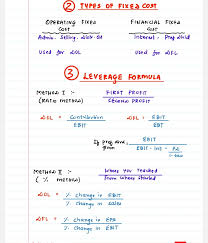 ② TYPES OF FIXED COST
OPERATING FIXED COST
FINANCIAL FIXED COST
Admin, Selling, Dist. OH
Interest, Pref Divd
Used for DOL
Used for DFL
③ LEVERAGE FORMULA
METHOD I :-
(RATIO METHOD)
FIRST PROFIT
SECOND PROFIT
DOL = Contribution / EBIT
DFL = EBIT / EBT
If Pref divd. given
EBIT
EBIT - Int -
METHOD II :-
(% METHOD)
Where You Reached
From Where Started
DOL = % change in EBIT
% change in Sales
DFL = % change in EPS
% change in EBIT